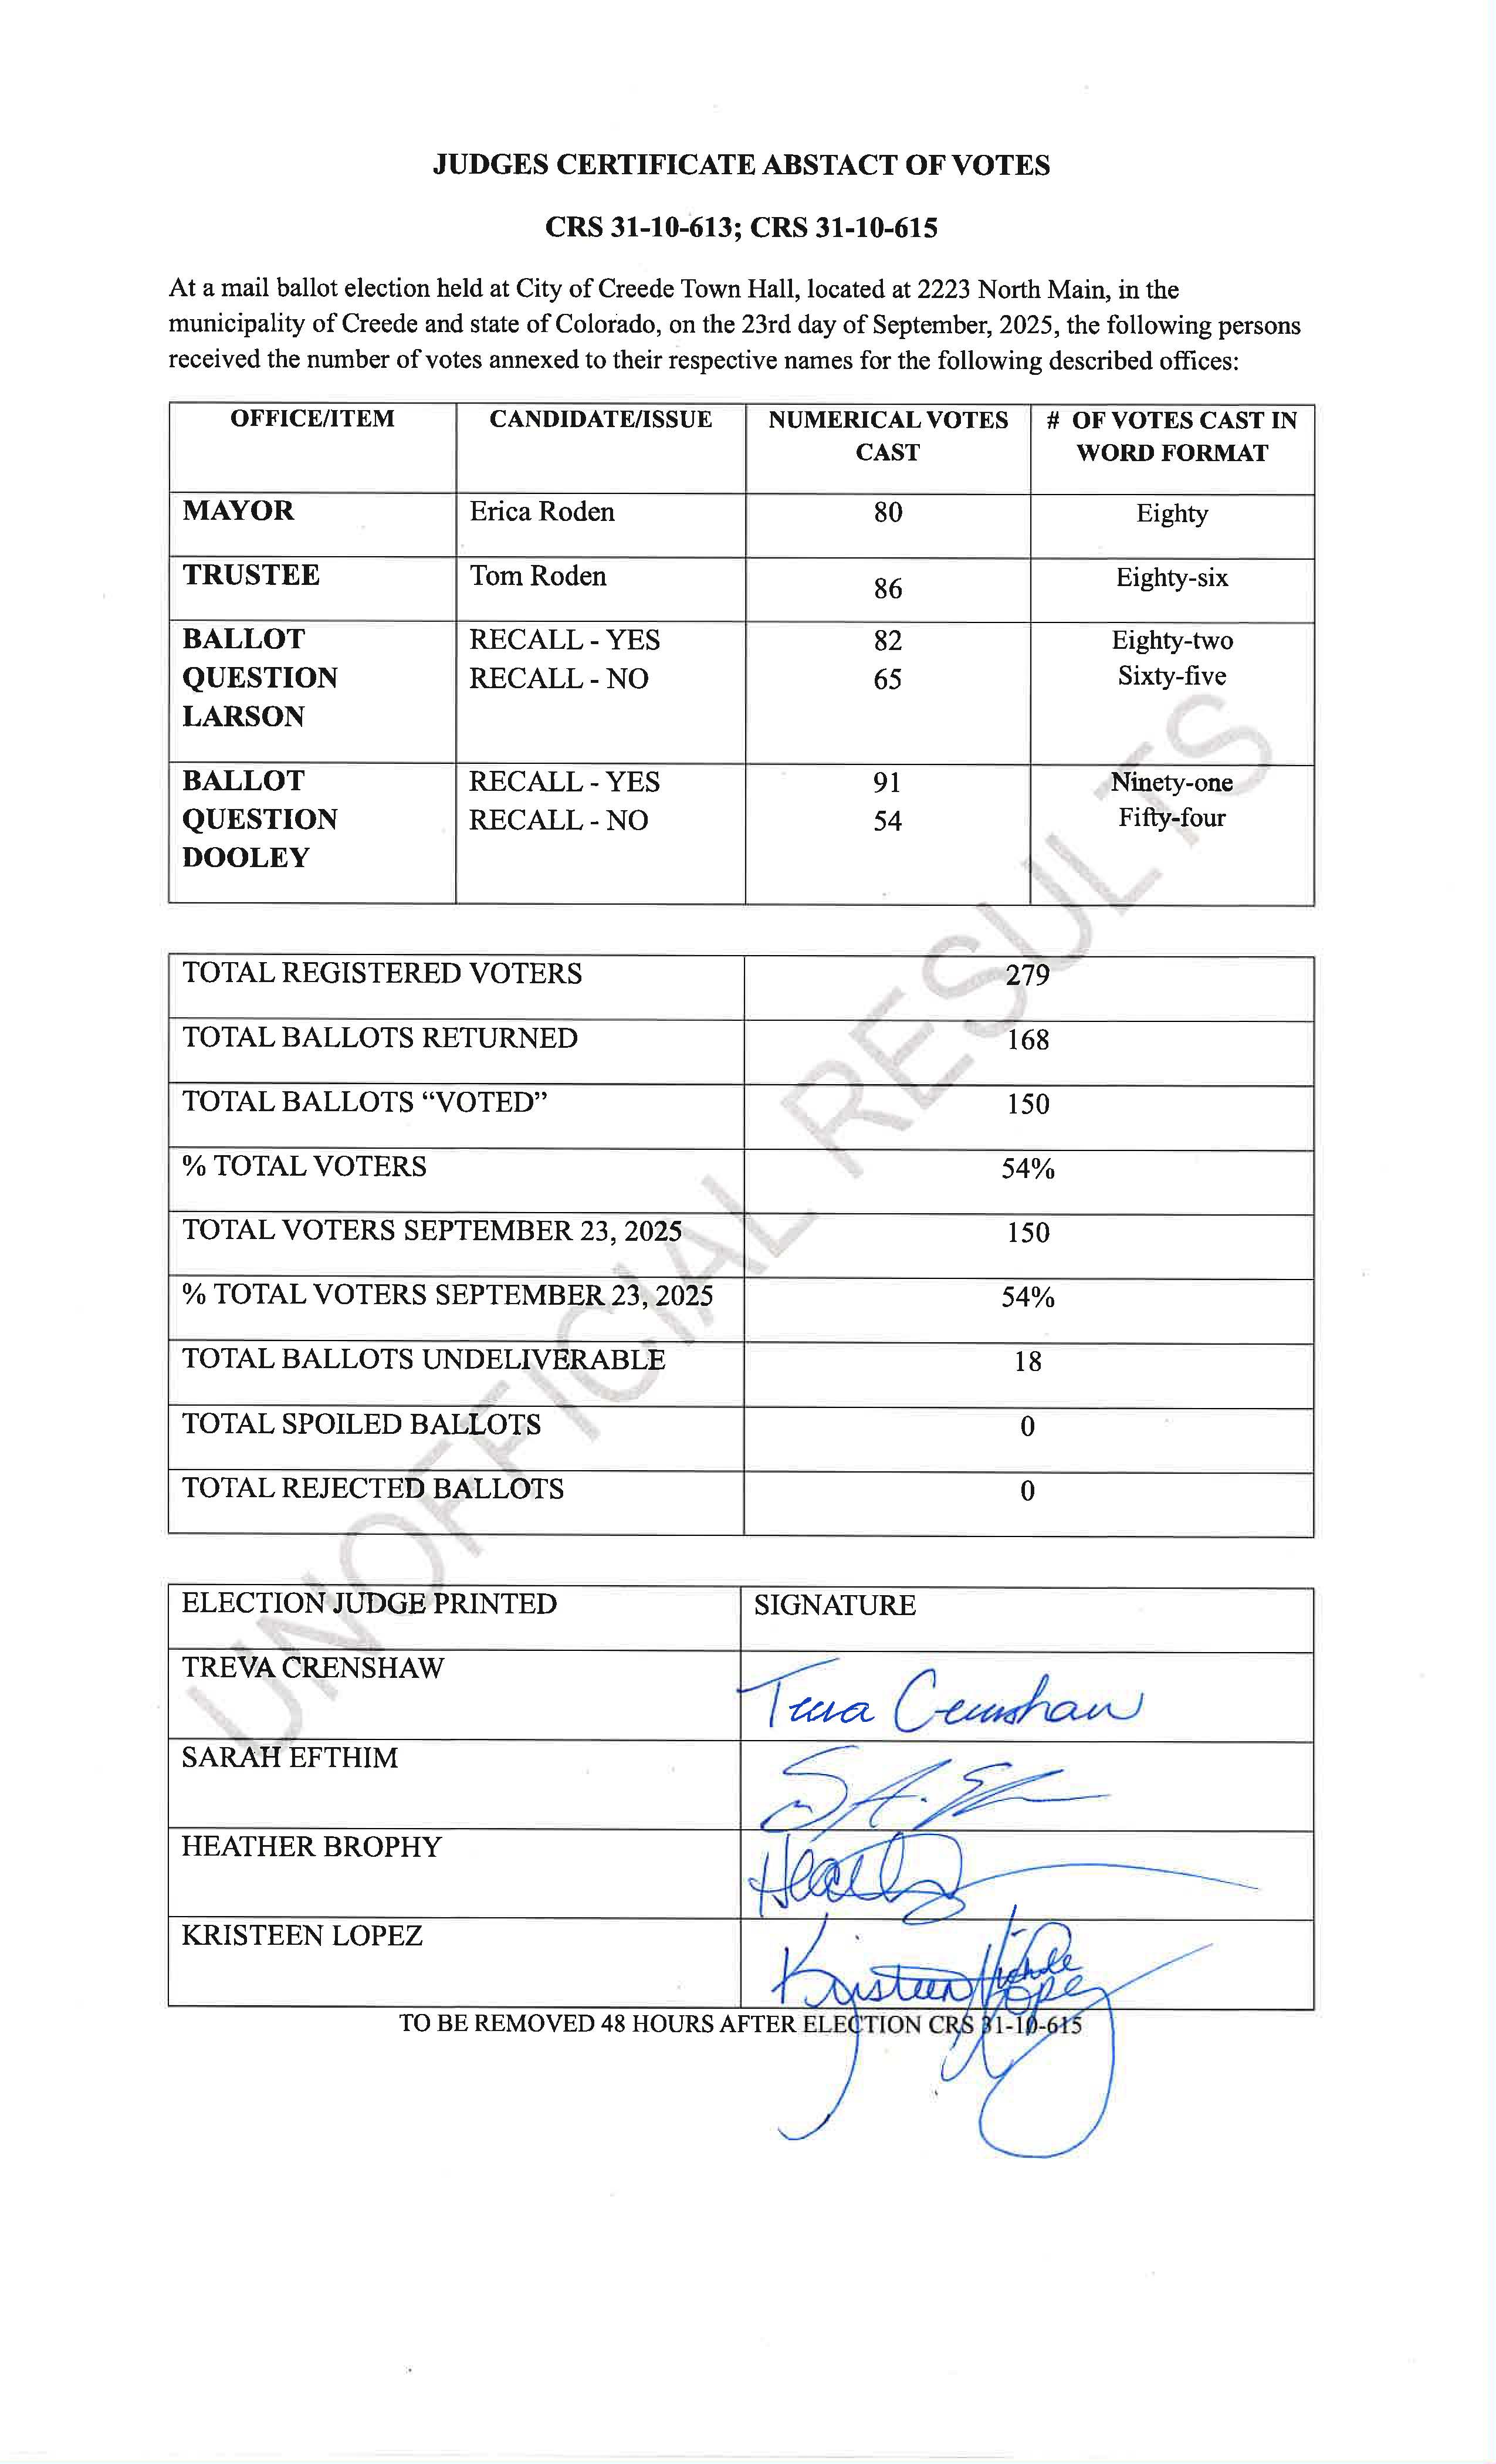 JUDGES CERTIFICATE ABSTACT OF VOTES
CRS 31-10-613; CRS 31-10-615
At a mail ballot election held at City of Creede Town Hall, located at 2223 North Main, in the
municipality of Creede and state of Colorado, on the 23rd day of September, 2025, the following persons
received the number of votes annexed to their respective names for the following described offices:
OFFICE/ITEM CANDIDATE/ISSUE NUMERICAL VOTES CAST # OF VOTES CAST IN WORD FORMAT
MAYOR Erica Roden 80 Eighty
TRUSTEE Tom Roden 86 Eighty-six
BALLOT RECALL - YES 82 Eighty-two
QUESTION RECALL - NO 65 Sixty-five
LARSON
BALLOT RECALL - YES 91 Ninety-one
QUESTION RECALL - NO 54 Fifty-four
DOOLEY
TOTAL REGISTERED VOTERS 279
TOTAL BALLOTS RETURNED 168
TOTAL BALLOTS “VOTED” 150
% TOTAL VOTERS 54%
TOTAL VOTERS SEPTEMBER 23, 2025 150
% TOTAL VOTERS SEPTEMBER 23, 2025 54%
TOTAL BALLOTS UNDELIVERABLE 18
TOTAL SPOILED BALLOTS 0
TOTAL REJECTED BALLOTS 0
UNOFFICIAL RESULTS
ELECTION JUDGE PRINTED SIGNATURE
TREVA CRENSHAW Treva Crenshaw
SARAH EFTHIM
HEATHER BROPHY
KRISTEEN LOPEZ Kristeen Nichole Lopez
TO BE REMOVED 48 HOURS AFTER ELECTION CRS 31-10-615